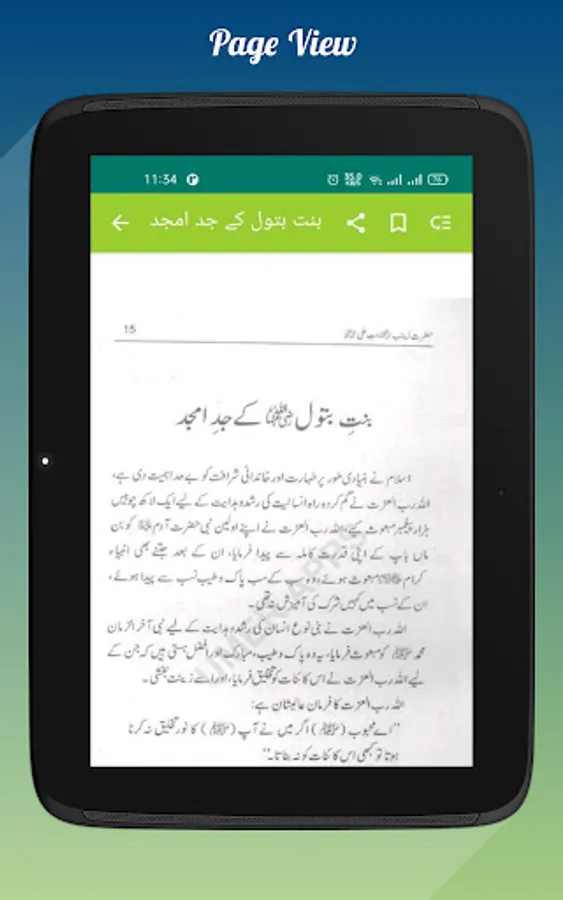 Page View
11:34
بنت بتول کے جد امجد
15
بنتِ بتول ؓ کے جدِ امجد
اسلام نے بنیادی طور پر طہارت اور خاندانی شرافت کو بے حد اہمیت دی ہے،
اللہ رب العزت نے گم کردہ راہ انسانیت کی رشد و ہدایت کے لیے ایک لاکھ چوبیس
ہزار پیغمبر مبعوث کیے، اللہ رب العزت نے اپنے اولین نبی حضرت آدم کو بن
ماں باپ کے اپنی قدرت کاملہ سے پیدا فرمایا، ان کے بعد جتنے بھی انبیاء
کرام مبعوث ہوئے، وہ سب کے سب پاک و طیب نسب سے پیدا ہوئے،
ان کے نسب میں کہیں شرک کی آمیزش نہ تھی۔
اللہ رب العزت نے بنی نوع انسان کی رشد و ہدایت کے لیے نبی آخر الزمان
محمد ﷺ کو مبعوث فرمایا، یہ وہ پاک و طیب، مبارک اور افضل ہستی ہیں کہ جن کے
لیے اللہ رب العزت نے اس کائنات کو تخلیق فرمایا، اور اسے زینت بخشی۔
اللہ رب العزت کا فرمان عالیشان ہے:
"اے محبوب (ﷺ) اگر میں نے آپ (ﷺ) کا نور تخلیق نہ کرنا
ہوتا تو کبھی اس کائنات کو نہ بناتا۔"